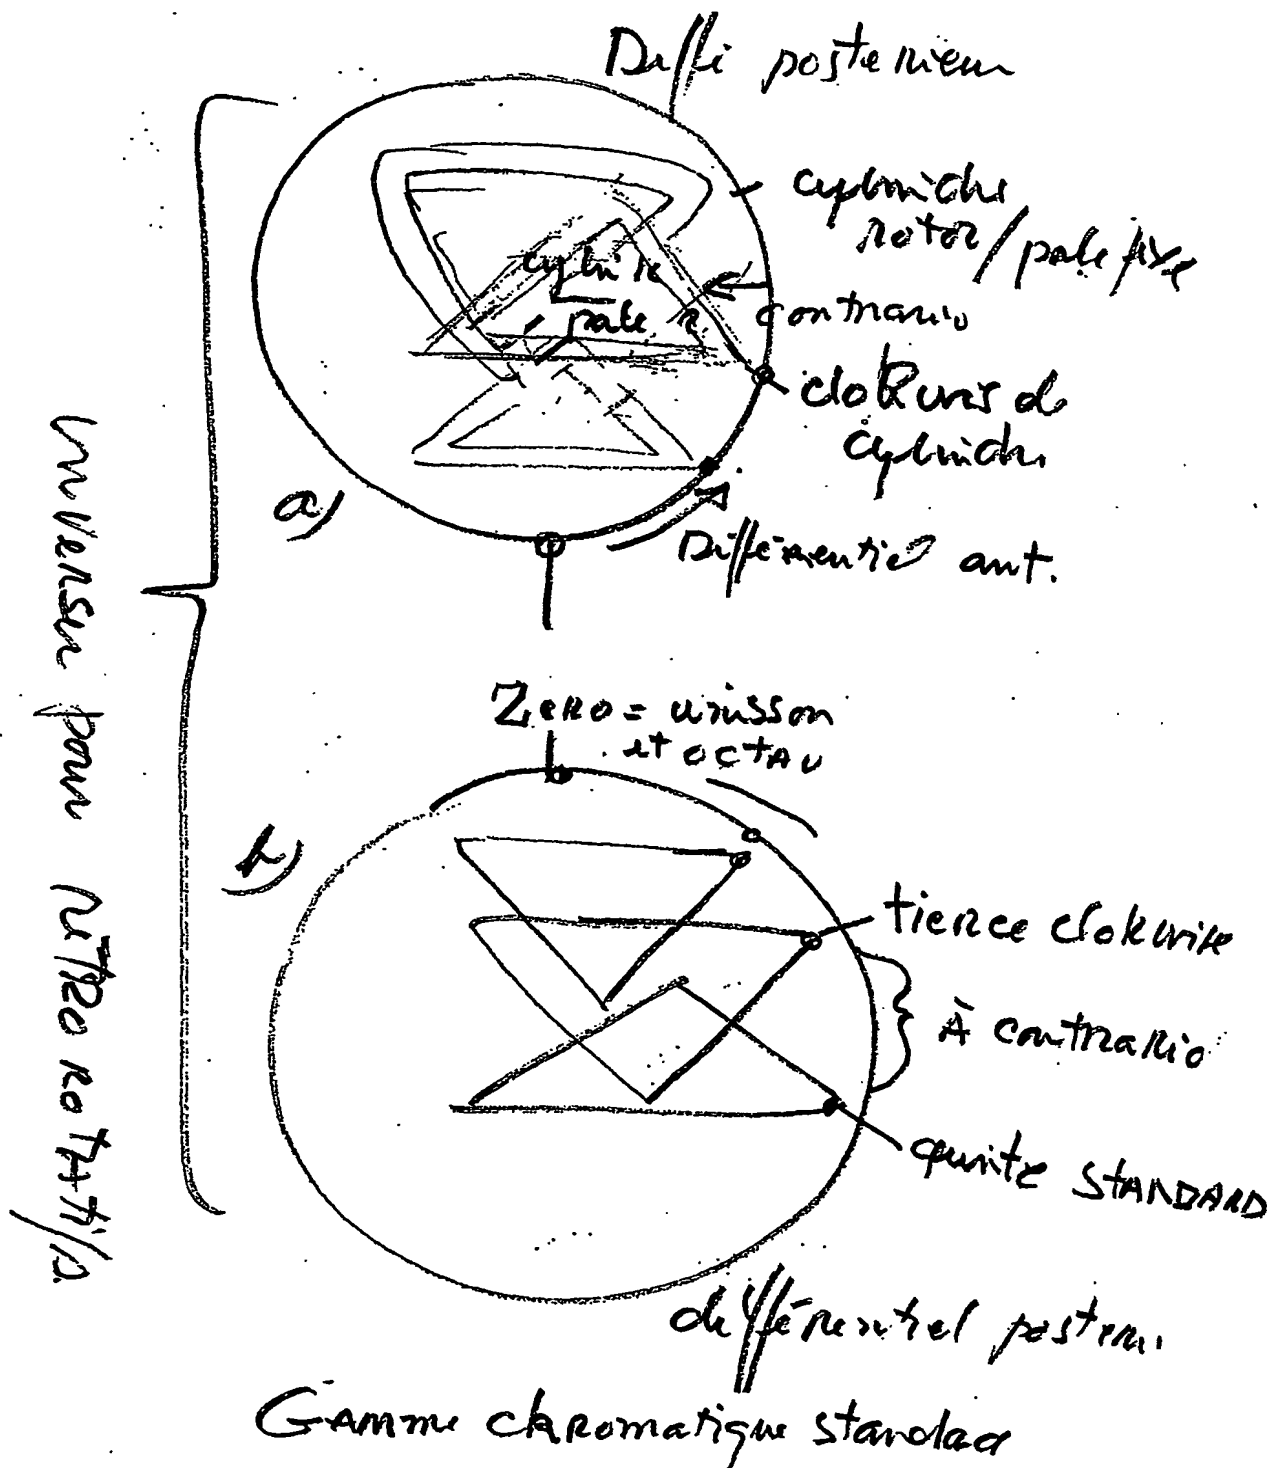 Diffi posterieur
cylindre
rotor / pale fixe
cylindre
pale
contrario
clokwis de
cylindre
a)
Différentiel ant.
inverser pour rétro rotatif
Zero = unisson
et octav
b)
tierce clokwise
À contrario
quinte STANDARD
différentiel posteri.
Gamme chromatique standad